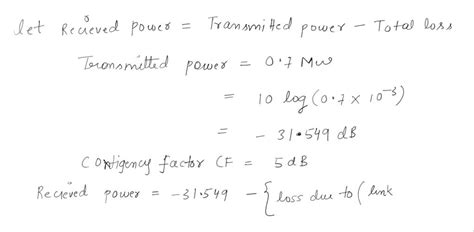 let Recieved power = Transmitted power - Total loss
Transmitted power = 0.7 Mw
= 10 log (0.7 x 10⁻³)
= - 31.549 dB
Contigency factor CF = 5 dB
Recieved power = -31.549 - { loss due to ( link